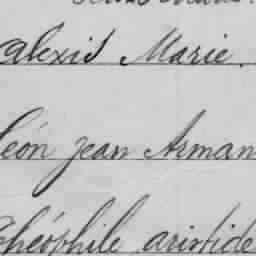 alexis Marie.
Léon jean Arman
Théophile aristide